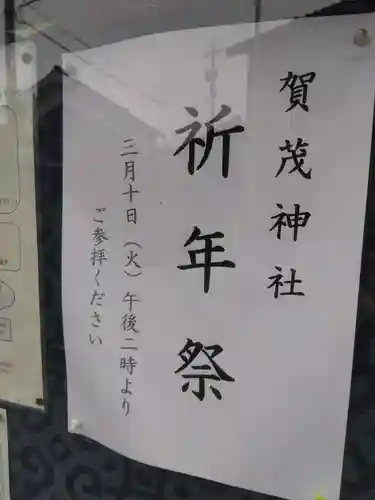 賀茂神社
祈年祭
三月十日（火）午後二時より
ご参拝ください